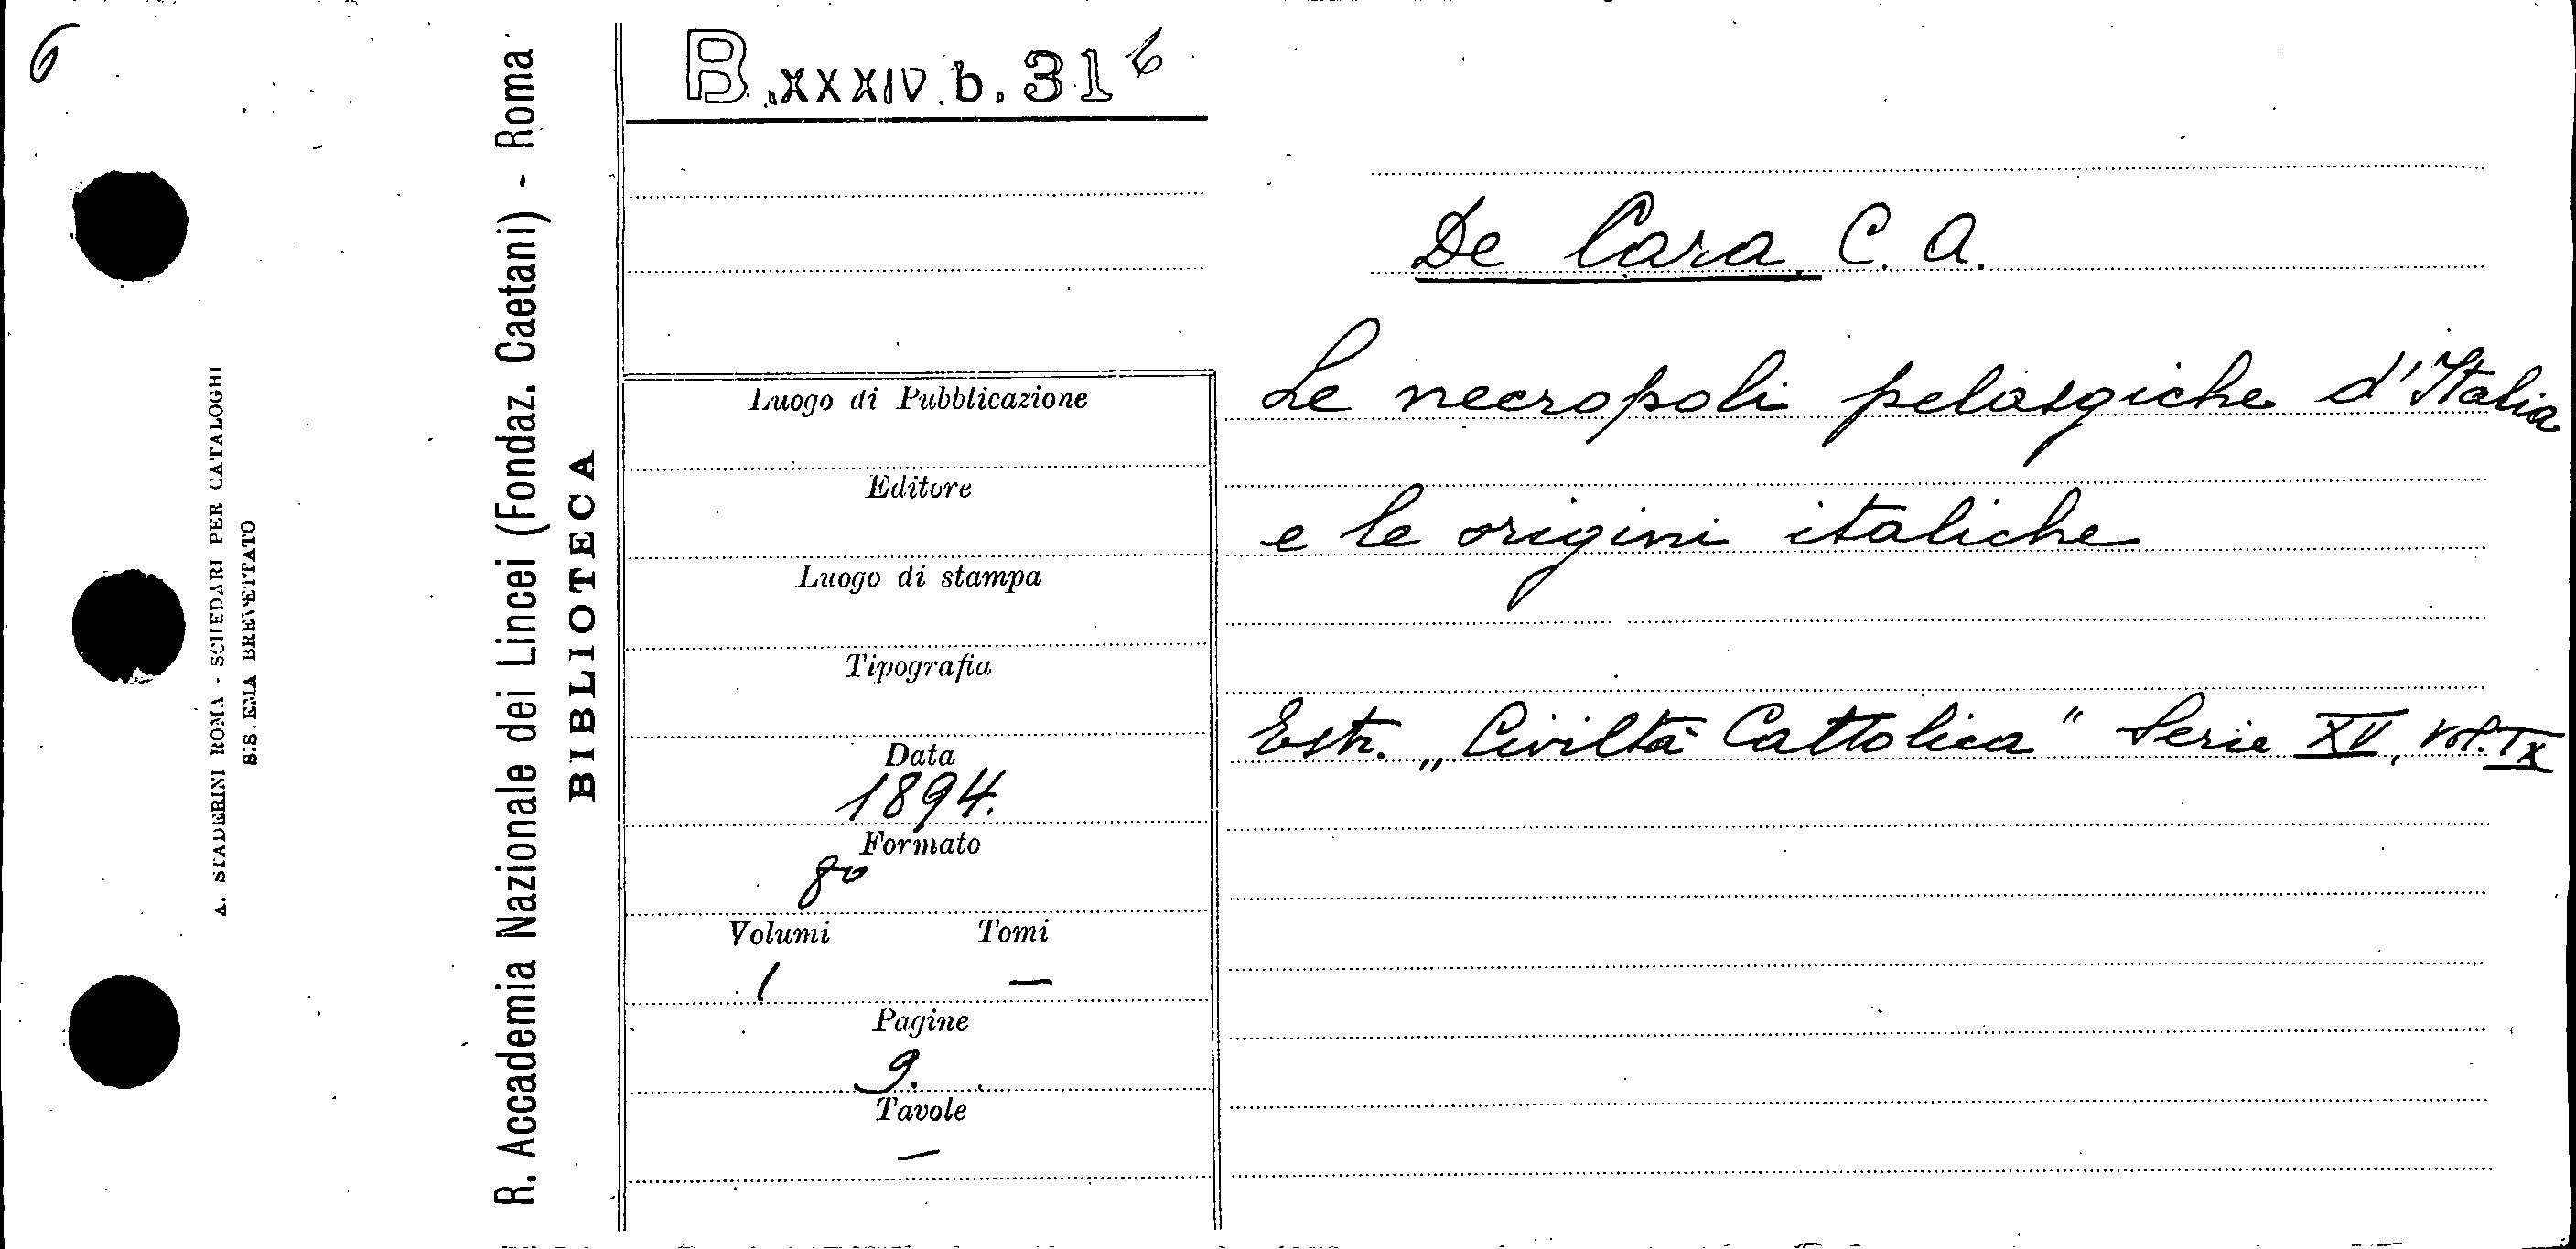 6
A. STADERINI ROMA - SCHEDARI PER CATALOGHI
S.S. EMA BREVETTATO
R. Accademia Nazionale dei Lincei (Fondaz. Caetani) - Roma
BIBLIOTECA
B.XXXIV.b.31 6
Luogo di Pubblicazione
Editore
Luogo di stampa
Tipografia
Data
1894.
Formato
8o
Volumi Tomi
1 —
Pagine
9.
Tavole
—
De Cara, C. A.
Le necropoli pelasgiche d'Italia
e le origini italiche
Estr. „Civiltà Cattolica“ Serie XV, vol. IX